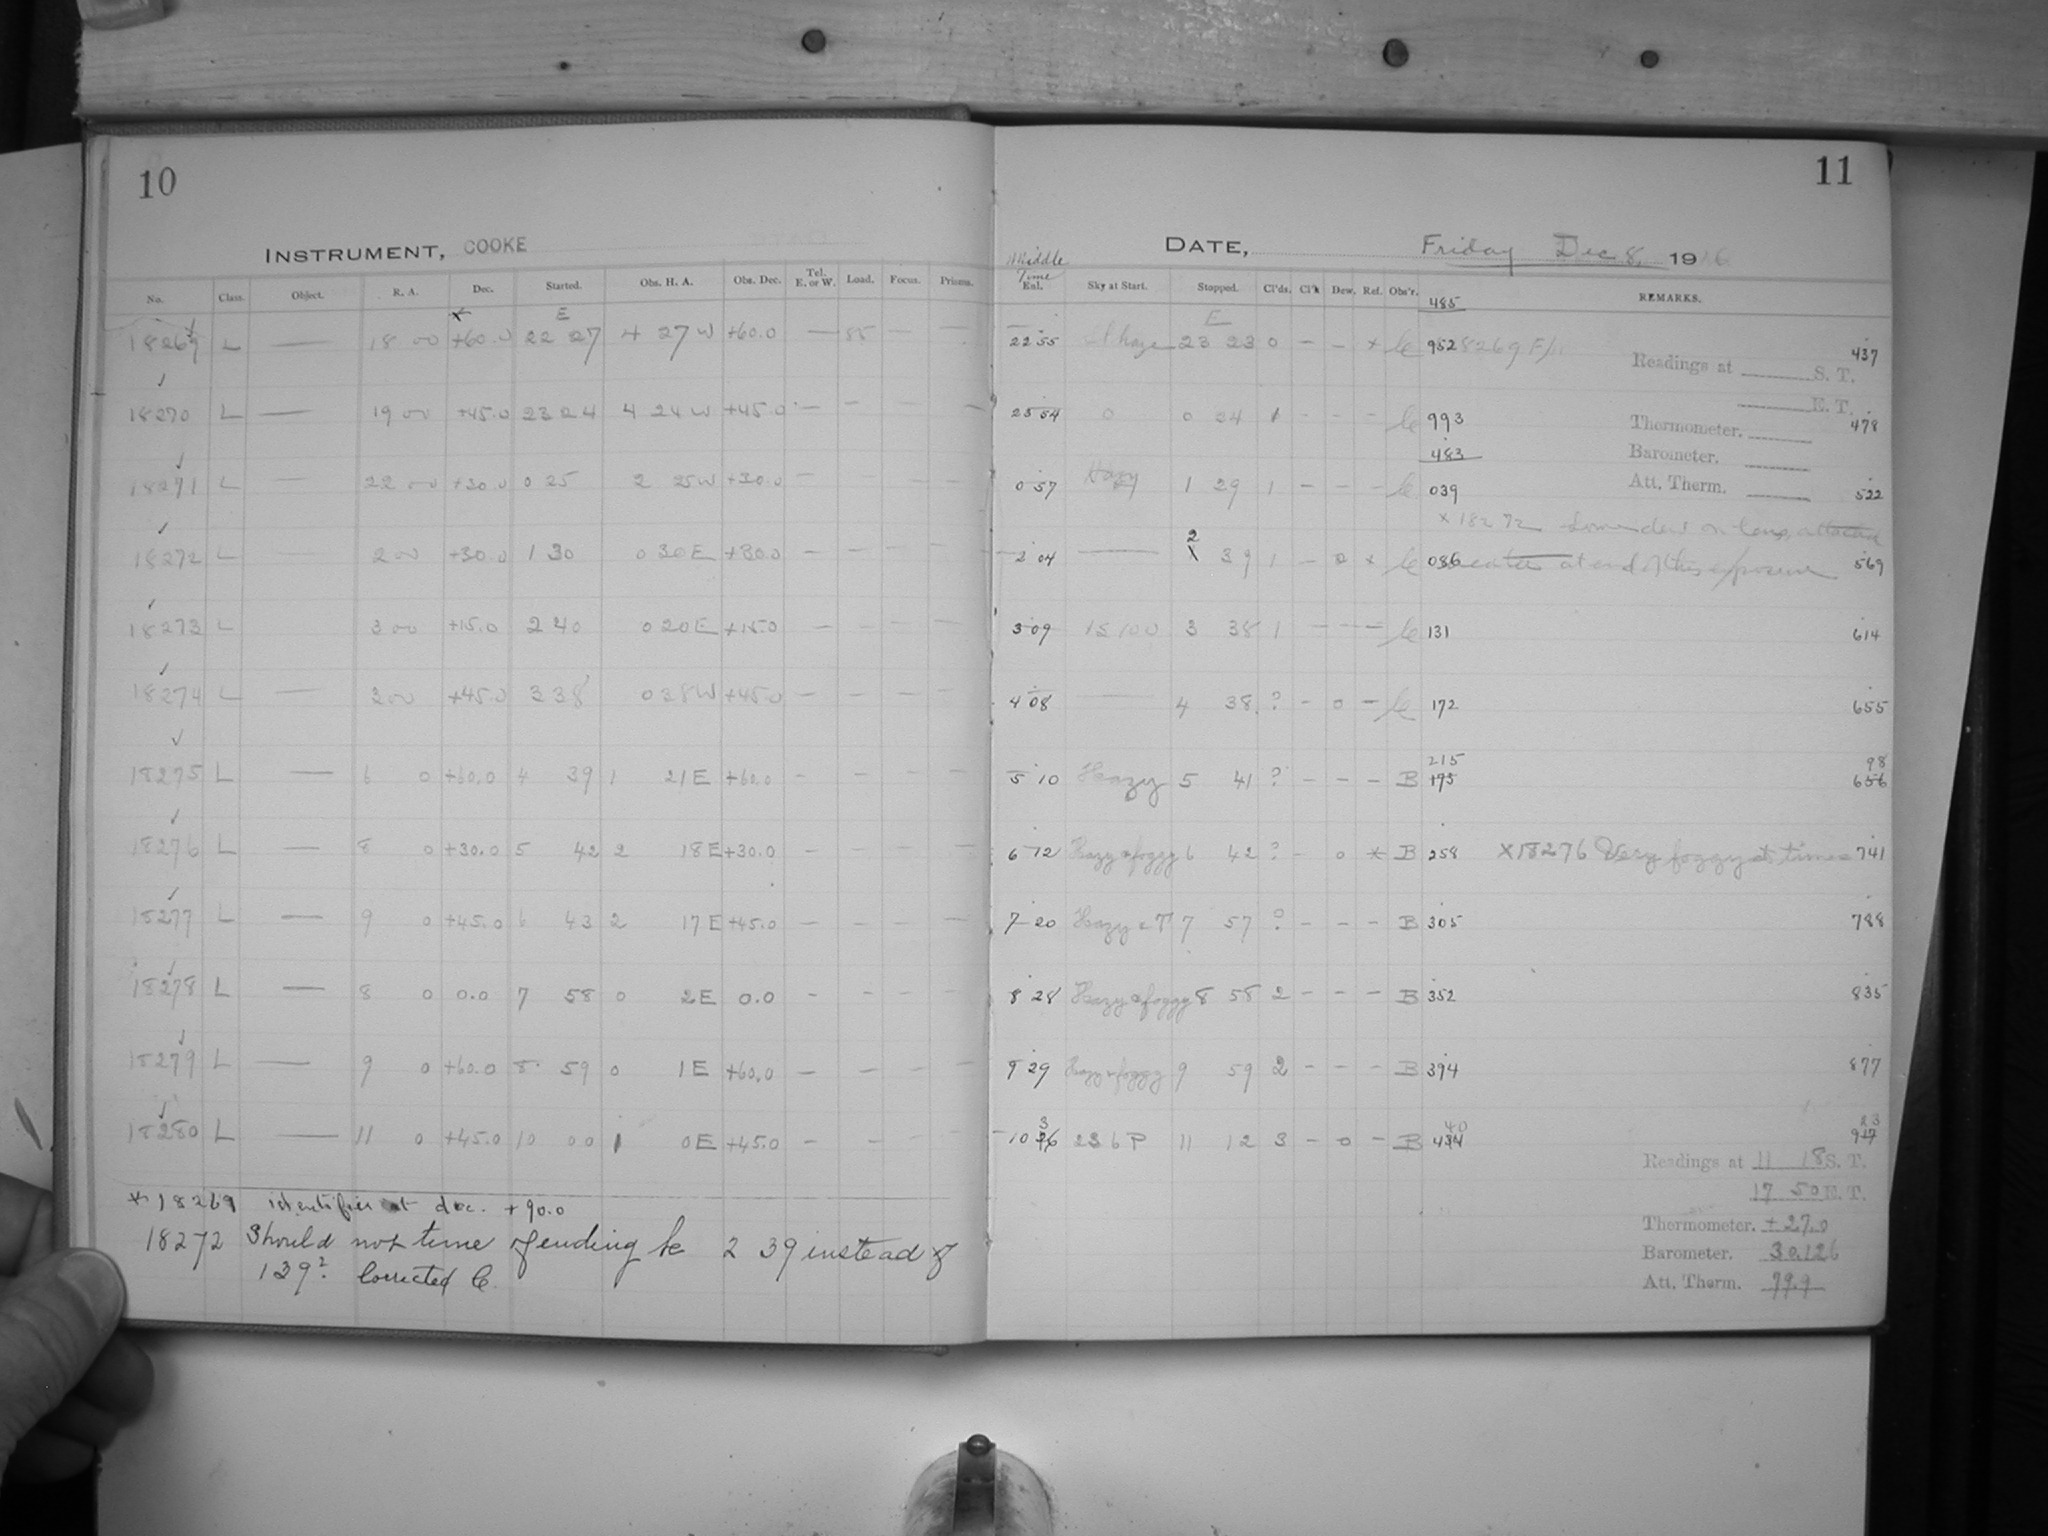 10
INSTRUMENT, COOKE
No. Class. Object. R. A. Dec. Started. Obs. H. A. Obs. Dec. Tel. E. or W. Load. Focus. Prisms.
* E
18269 L — 18 00 +60.0 22 27 4 27 W +60.0 — 85 — —
18270 L — 19 00 +45.0 23 24 4 24 W +45.0 — — — —
18271 L — 22 00 +30.0 0 25 2 25 W +30.0 —
18272 L — 2 00 +30.0 1 30 0 30 E +30.0 — — — —
18273 L — 3 00 +15.0 2 40 0 20 E +15.0 — — — —
18274 L — 3 00 +45.0 3 38 0 38 W +45.0 — — — —
18275 L — 6 0 +60.0 4 39 1 21 E +60.0 — — — —
18276 L — 8 0 +30.0 5 42 2 18 E +30.0 — — — —
18277 L — 9 0 +45.0 6 43 2 17 E +45.0 — — — —
18278 L — 8 0 0.0 7 58 0 2 E 0.0 — — — —
18279 L — 9 0 +60.0 8 59 0 1 E +60.0 — — — —
18280 L — 11 0 +45.0 10 00 1 0 E +45.0 — — — —
* 18269 identifies at dec. +90.0
18272 Should not time of ending be 2 39 instead of
1 39? Corrected C.
11
DATE, Friday Dec 8, 1916
Middle Time
Enl. Sky at Start. Stopped. Cl'ds. Cl'k Dew. Ref. Obs'r. REMARKS.
485
E
22 55 Sl haze 23 23 0 — — * C 952 8269 F/ 437
Readings at S. T.
E. T.
23 54 0 0 24 1 — — — C 993 478
Thermometer.
483 Barometer.
0 57 Hazy 1 29 1 — — — C 039 522
Att. Therm.
x 18272 Some dew on lens, attached
2 04 — 2 39 1 — 0 * C 086 heater at end of this exposure 569
3 09 15 100 3 38 1 — — — C 131 614
4 08 — 4 38 ? — 0 — C 172 655
215 98
5 10 Hazy 5 41 ? — — — B 175 656
6 12 Hazy & foggy 6 42 ? — 0 * B 258 x18276 Very foggy at times 741
7 20 Hazy 7 57 ? — — — B 305 788
8 28 Hazy & foggy 8 58 2 — — — B 352 835
9 29 Hazy & foggy 9 59 2 — — — B 394 877
3 40 23
10 36 236 P 11 12 3 — 0 — B 434 917
Readings at 11 18 S. T.
17 50 E. T.
Thermometer. +27.0
Barometer. 30.126
Att. Therm. 79.9